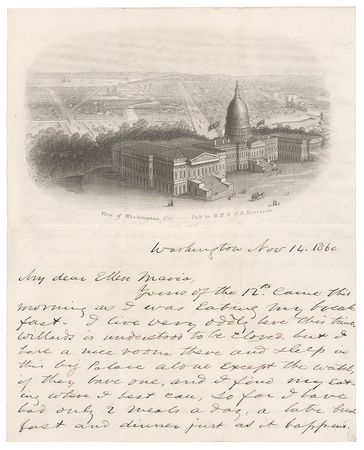 View of Washington City — Pub. by W.H. & O.H. Morrison.
Washington Nov 14. 1860
My dear Ellen Maria,
Yours of the 12th came this
morning as I was eating my break
fast. I live very oddly here this time
Willards is understood to be closed, but I
have a nice room there and sleep in
this big Palace alone except the watch,
if they have one, and I find my eat-
ing where I best can, so far I have
had only 2 meals a day, a late break
fast and dinner just as it happens.